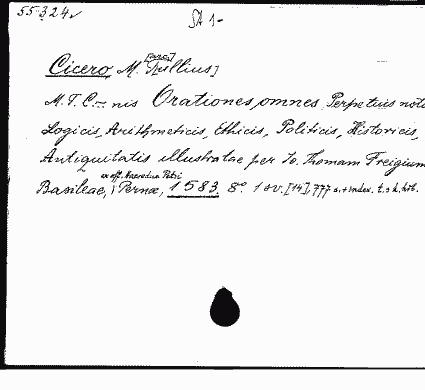 55.324
SA 1-
Cicero, M. Tullius]
M. T. C— nis Orationes omnes Perpetuis not
Logicis, Arithmeticis, Ethicis, Politicis, Historicis,
Antiquitatis illustratae per Jo. Thomam Freigium
ex off. Haeredum Petri
Basileae, Pernae, 1583. 8°. [14], 777 s. + index.